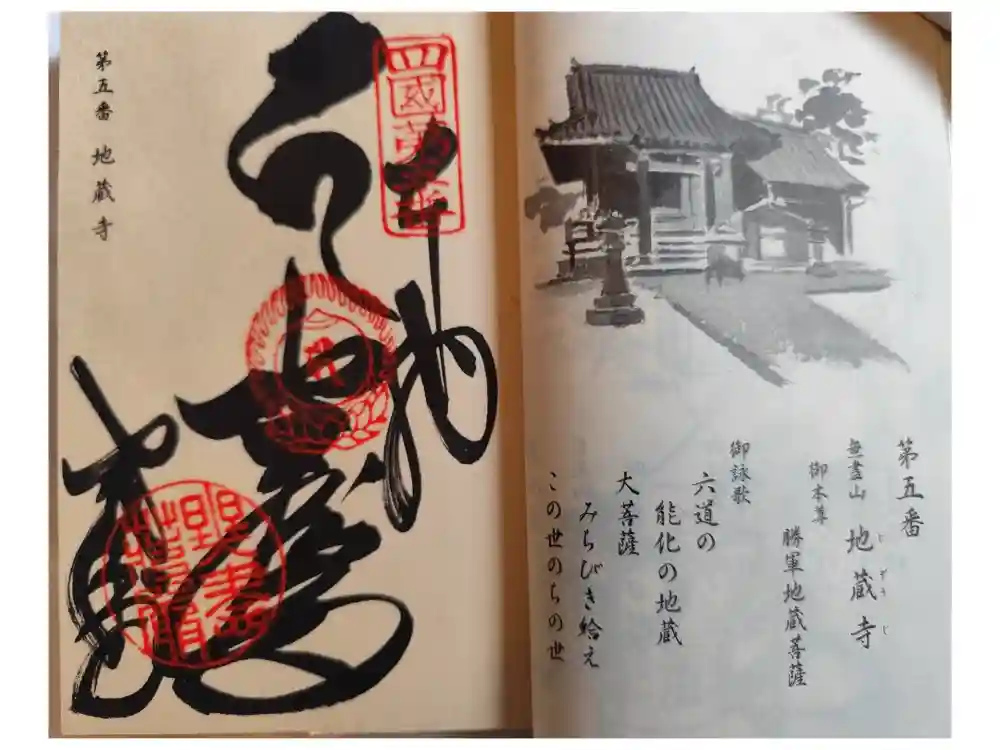 第五番
無盡山 地蔵寺
じぞうじ
御本尊
勝軍地蔵菩薩
御詠歌
六道の
能化の地蔵
大菩薩
みちびき給え
この世のちの世
四國第五番
第五番 地蔵寺